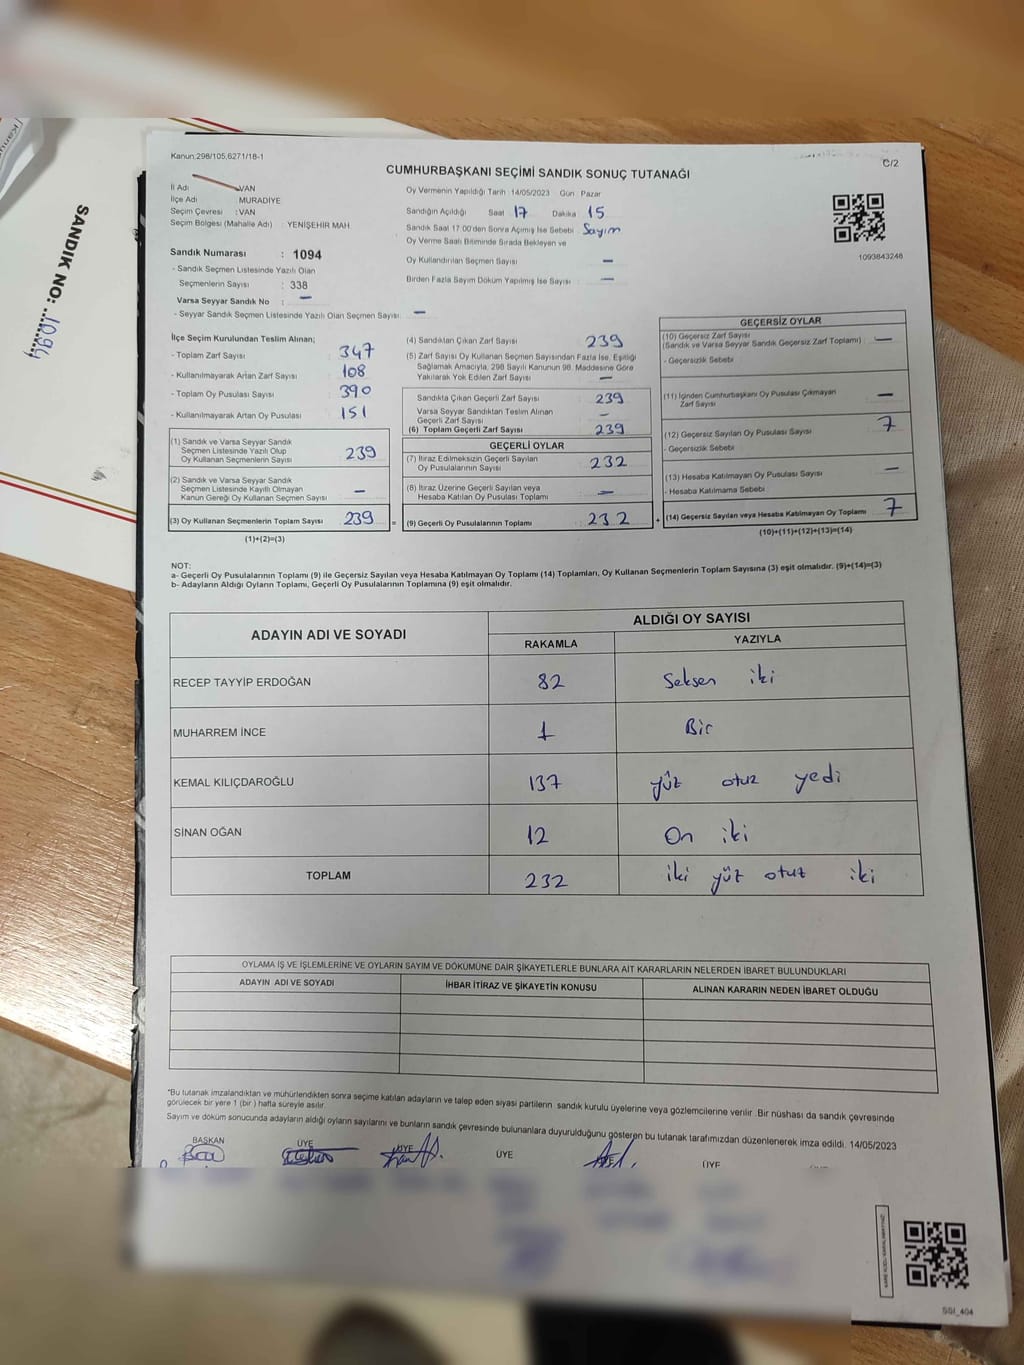 Kanun,298/105,6271/18-1
C/2
CUMHURBAŞKANI SEÇİMİ SANDIK SONUÇ TUTANAĞI
İl Adı : VAN
İlçe Adı : MURADİYE
Seçim Çevresi : VAN
Seçim Bölgesi (Mahalle Adı) : YENİŞEHİR MAH
Sandık Numarası : 1094
- Sandık Seçmen Listesinde Yazılı Olan
Seçmenlerin Sayısı : 338
Varsa Seyyar Sandık No : –
- Seyyar Sandık Seçmen Listesinde Yazılı Olan Seçmen Sayısı: –
Oy Vermenin Yapıldığı Tarih :14/05/2023 Gün :Pazar
Sandığın Açıldığı Saat 17 Dakika 15
Sandık Saat 17:00'den Sonra Açılmış İse Sebebi : Sayım
Oy Verme Saati Bitiminde Sırada Bekleyen ve
Oy Kullandırılan Seçmen Sayısı : –
Birden Fazla Sayım Döküm Yapılmış İse Sayısı : –
1093843248
SANDIK NO: 1094
İlçe Seçim Kurulundan Teslim Alınan;
- Toplam Zarf Sayısı : 347
- Kullanılmayarak Artan Zarf Sayısı : 108
- Toplam Oy Pusulası Sayısı : 390
- Kullanılmayarak Artan Oy Pusulası : 151
(1) Sandık ve Varsa Seyyar Sandık
Seçmen Listesinde Yazılı Olup
Oy Kullanan Seçmenlerin Sayısı : 239
(2) Sandık ve Varsa Seyyar Sandık
Seçmen Listesinde Kayıtlı Olmayan
Kanun Gereği Oy Kullanan Seçmen Sayısı : –
(3) Oy Kullanan Seçmenlerin Toplam Sayısı : 239 =
(1)+(2)=(3)
(4) Sandıktan Çıkan Zarf Sayısı : 239
(5) Zarf Sayısı Oy Kullanan Seçmen Sayısından Fazla İse, Eşitliği
Sağlamak Amacıyla, 298 Sayılı Kanunun 98. Maddesine Göre
Yakılarak Yok Edilen Zarf Sayısı : –
Sandıkta Çıkan Geçerli Zarf Sayısı : 239
Varsa Seyyar Sandıktan Teslim Alınan
Geçerli Zarf Sayısı : –
(6) Toplam Geçerli Zarf Sayısı : 239
GEÇERLİ OYLAR
(7) İtiraz Edilmeksizin Geçerli Sayılan
Oy Pusulalarının Sayısı : 232
(8) İtiraz Üzerine Geçerli Sayılan veya
Hesaba Katılan Oy Pusulası Toplamı : –
(9) Geçerli Oy Pusulalarının Toplamı : 232 +
GEÇERSİZ OYLAR
(10) Geçersiz Zarf Sayısı
(Sandık ve Varsa Seyyar Sandık Geçersiz Zarf Toplamı) : –
- Geçersizlik Sebebi
(11) İçinden Cumhurbaşkanı Oy Pusulası Çıkmayan
Zarf Sayısı : –
(12) Geçersiz Sayılan Oy Pusulası Sayısı : 7
- Geçersizlik Sebebi
(13) Hesaba Katılmayan Oy Pusulası Sayısı : –
- Hesaba Katılmama Sebebi
(14) Geçersiz Sayılan veya Hesaba Katılmayan Oy Toplamı : 7
(10)+(11)+(12)+(13)=(14)
NOT:
a- Geçerli Oy Pusulalarının Toplamı (9) ile Geçersiz Sayılan veya Hesaba Katılmayan Oy Toplamı (14) Toplamları, Oy Kullanan Seçmenlerin Toplam Sayısına (3) eşit olmalıdır. (9)+(14)=(3)
b- Adayların Aldığı Oyların Toplamı, Geçerli Oy Pusulalarının Toplamına (9) eşit olmalıdır.
ADAYIN ADI VE SOYADI ALDIĞI OY SAYISI
RAKAMLA YAZIYLA
RECEP TAYYİP ERDOĞAN 82 Seksen iki
MUHARREM İNCE 1 Bir
KEMAL KILIÇDAROĞLU 137 yüz otuz yedi
SİNAN OĞAN 12 On iki
TOPLAM 232 iki yüz otuz iki
OYLAMA İŞ VE İŞLEMLERİNE VE OYLARIN SAYIM VE DÖKÜMÜNE DAİR ŞİKAYETLERLE BUNLARA AİT KARARLARIN NELERDEN İBARET BULUNDUKLARI
ADAYIN ADI VE SOYADI İHBAR İTİRAZ VE ŞİKAYETİN KONUSU ALINAN KARARIN NEDEN İBARET OLDUĞU
*Bu tutanak imzalandıktan ve mühürlendikten sonra seçime katılan adayların ve talep eden siyasi partilerin sandık kurulu üyelerine veya gözlemcilerine verilir. Bir nüshası da sandık çevresinde
görülecek bir yere 1 (bir) hafta süreyle asılır.
Sayım ve döküm sonucunda adayların aldığı oyların sayılarını ve bunların sandık çevresinde bulunanlara duyurulduğunu gösteren bu tutanak tarafımızdan düzenlenerek imza edildi. 14/05/2023
BAŞKAN ÜYE ÜYE ÜYE ÜYE ÜYE
SSI_404